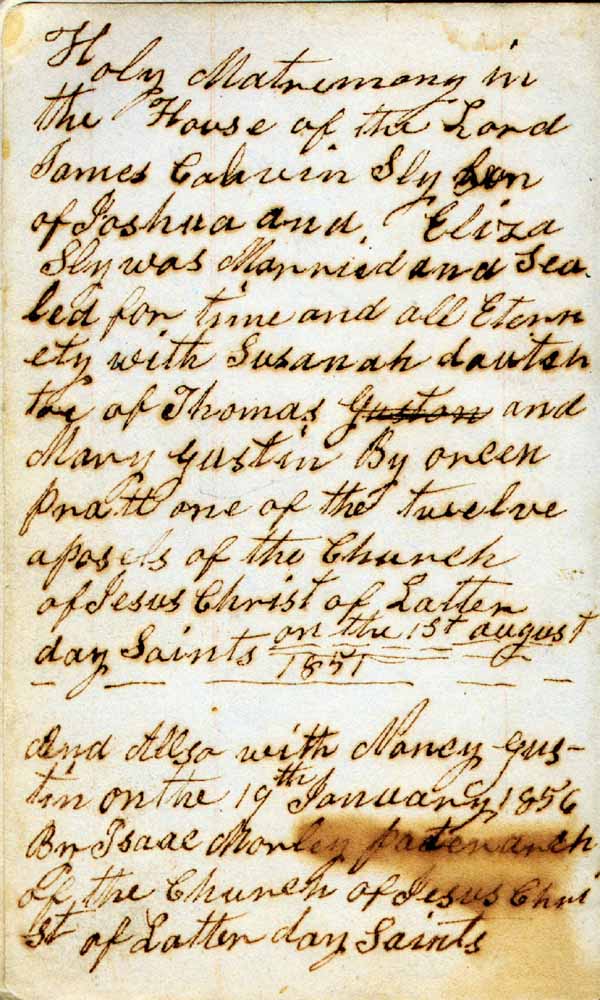 Holy Matremony in
the House of the Lord
James Calvin Sly Son
of Joshua and Eliza
Sly was Married and Sea-
led for time and all Eterni
ety with Susanah dauteh
ter of Thomas Guston and
Mary Gustin By orcen
Pratt one of the twelve
aposels of the Church
of Jesus Christ of Latter
day Saints on the 1st august
1851
And Allso with Nancy Gus-
tin on the 19th January 1856
By Isaac Morley patenarch
off the Church of Jesus Chri
st of Latter day Saints